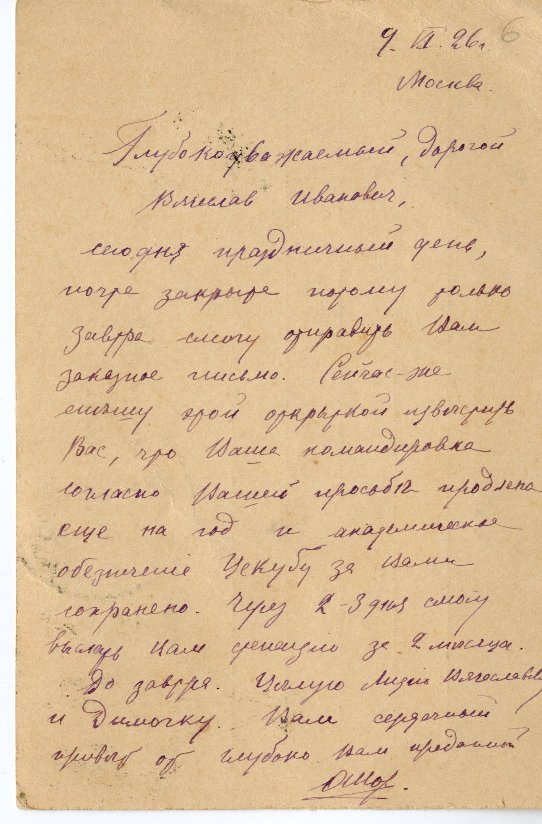 9. VI. 26 г. 6
Москва.
Глубокоуважаемый, дорогой
Вячеслав Иванович,
сегодня праздничный день,
почта закрыта потому только
завтра смогу отправить Вам
заказное письмо. Сейчас-же
спешу этой открыткой известить
Вас, что Ваша командировка
согласно Вашей просьбы продлена
еще на год и академическое
обезпечение Цекубу за Вами
сохранено. Через 2-3 дня смогу
выслать Вам за 2 месяца.
До завтра. Целую Лидию Вячеславовну
и Димочку. Вам сердечный
привет от глубоко Вам преданной
ОШор.